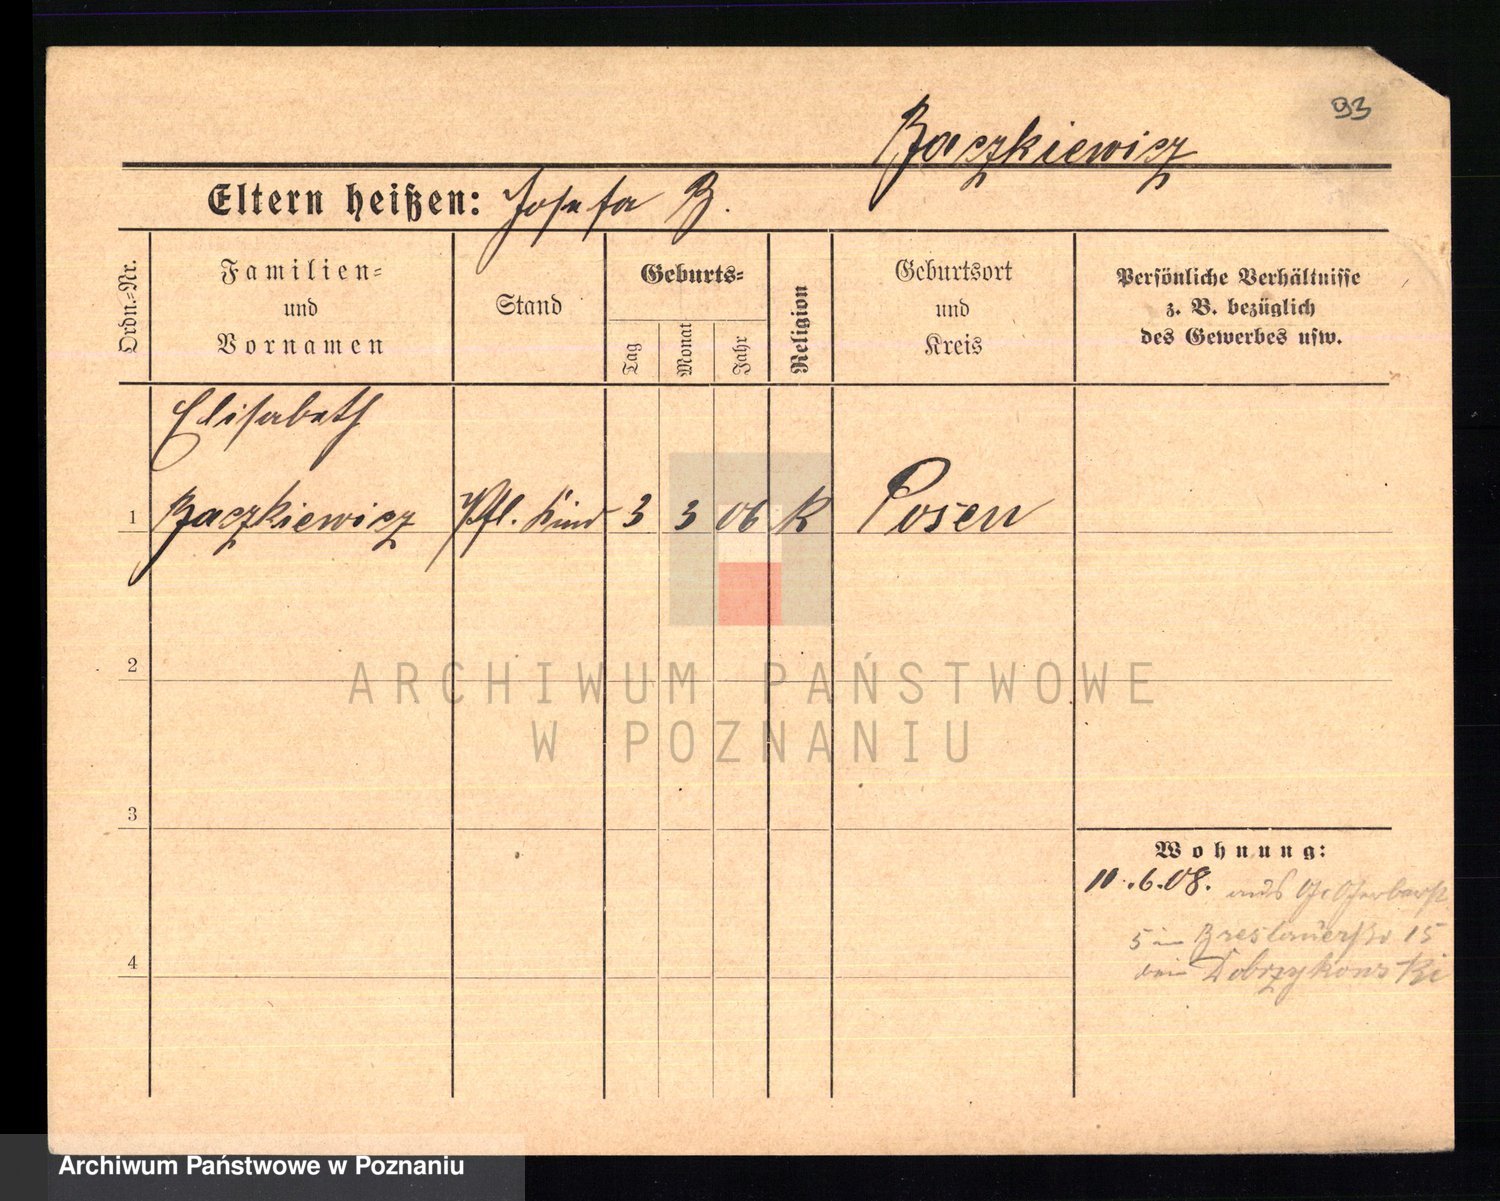 93
Baczkiewicz
Eltern heißen: Josefa B.
Ordn.-Nr.
Familien-
und
Vornamen
Stand
Geburts-
Tag
Monat
Jahr
Religion
Geburtsort
und
Kreis
Persönliche Verhältnisse
z. B. bezüglich
des Gewerbes usw.
Elisabeth
1 Baczkiewicz Pfl. Kind 3 3 06 K Posen
2
ARCHIWUM PAŃSTWOWE
W POZNANIU
3
Wohnung:
10.6.08. aus Gr. Gerberst
5 in Breslauerstr 15
4
bei Dobrzykowski
Archiwum Państwowe w Poznaniu